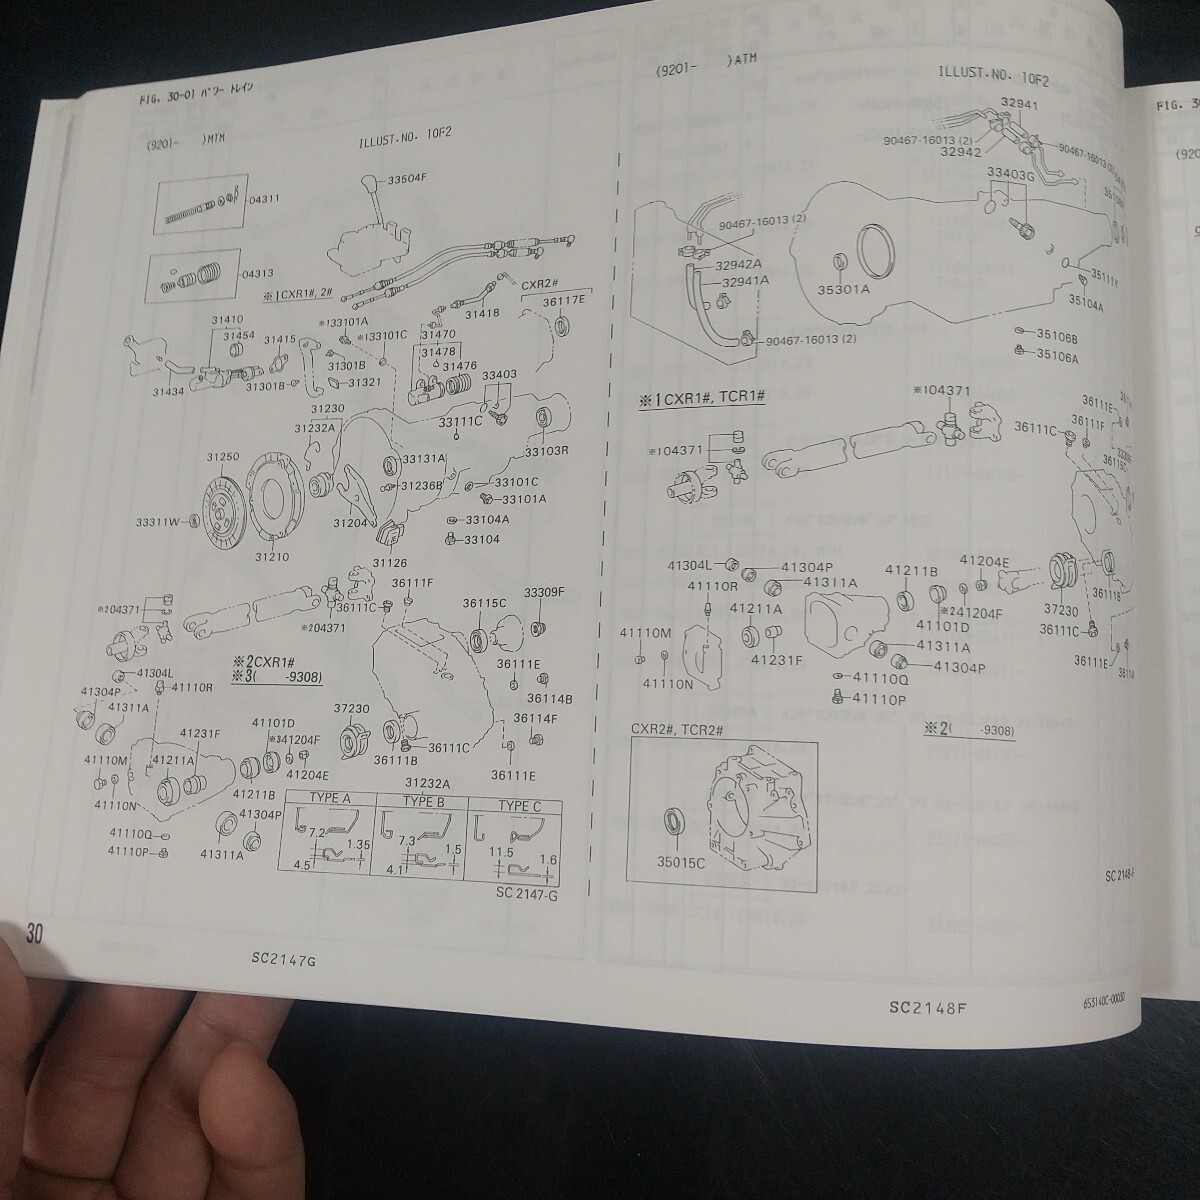 FIG. 30-01 パワー トレイン
(9201-     )MTM
ILLUST.NO. 1OF2
33504F
04311
04313
※1CXR1#, 2#
31410
31454
31415
※133101A
※133101C
31418
CXR2#
36117E
31470
31478
31476
31434
31301B
31301B
31321
33403
31230
31232A
33111C
31250
33131A
33103R
31236B
33101C
33101A
33311W
31204
33104A
31210
33104
31126
36111F
※204371
36111C
36115C
33309F
※204371
※2CXR1#
※3(     -9308)
41304L
41304P
41110R
41311A
36111E
36114B
37230
41101D
36114F
41231F
※341204F
36111C
41110M
41211A
36111B
36111E
41204E
31232A
41110N
41211B
41304P
41110Q
41110P
41311A
TYPE A
TYPE B
TYPE C
7.2
1.35
4.5
7.3
1.5
4.1
11.5
1.6
SC 2147-G
30
SC2147G
(9201-     )ATM
ILLUST.NO. 1OF2
32941
90467-16013 (2)
32942
90467-16013 (2)
33403G
90467-16013 (2)
32942A
32941A
35301A
35111V
35104A
90467-16013 (2)
35106B
35106A
※1CXR1#, TCR1#
※104371
※104371
36111E
36111F
36111C
36115C
41304L
41304P
41110R
41311A
41211B
41204E
41211A
※241204F
41101D
37230
36111B
36111C
41110M
41231F
41311A
41304P
36111E
41110N
41110Q
41110P
CXR2#, TCR2#
※2(     -9308)
35015C
SC 2148-F
SC2148F
653140C-00030
FIG. 30
(920